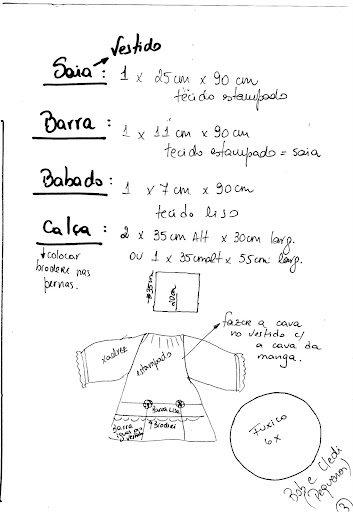 Vestido
Saia : 1 x 25cm x 90 cm
tecido estampado
Barra : 1 x 11 cm x 90 cm
tecido estampado = saia
Babado : 1 x 7cm x 90cm
tecido liso
Calça : 2 x 35cm Alt x 30cm larg.
ou 1 x 35cm alt x 55cm larg.
colocar
broderi nas
pernas.
35cm
20cm
fazer a cava
no vestido c/
a cava da
manga.
xadrez
estampado
Barra Lisa
Barra
Broderi
Fuxico
6x
Bob e Cledi
(Pequenos)
3